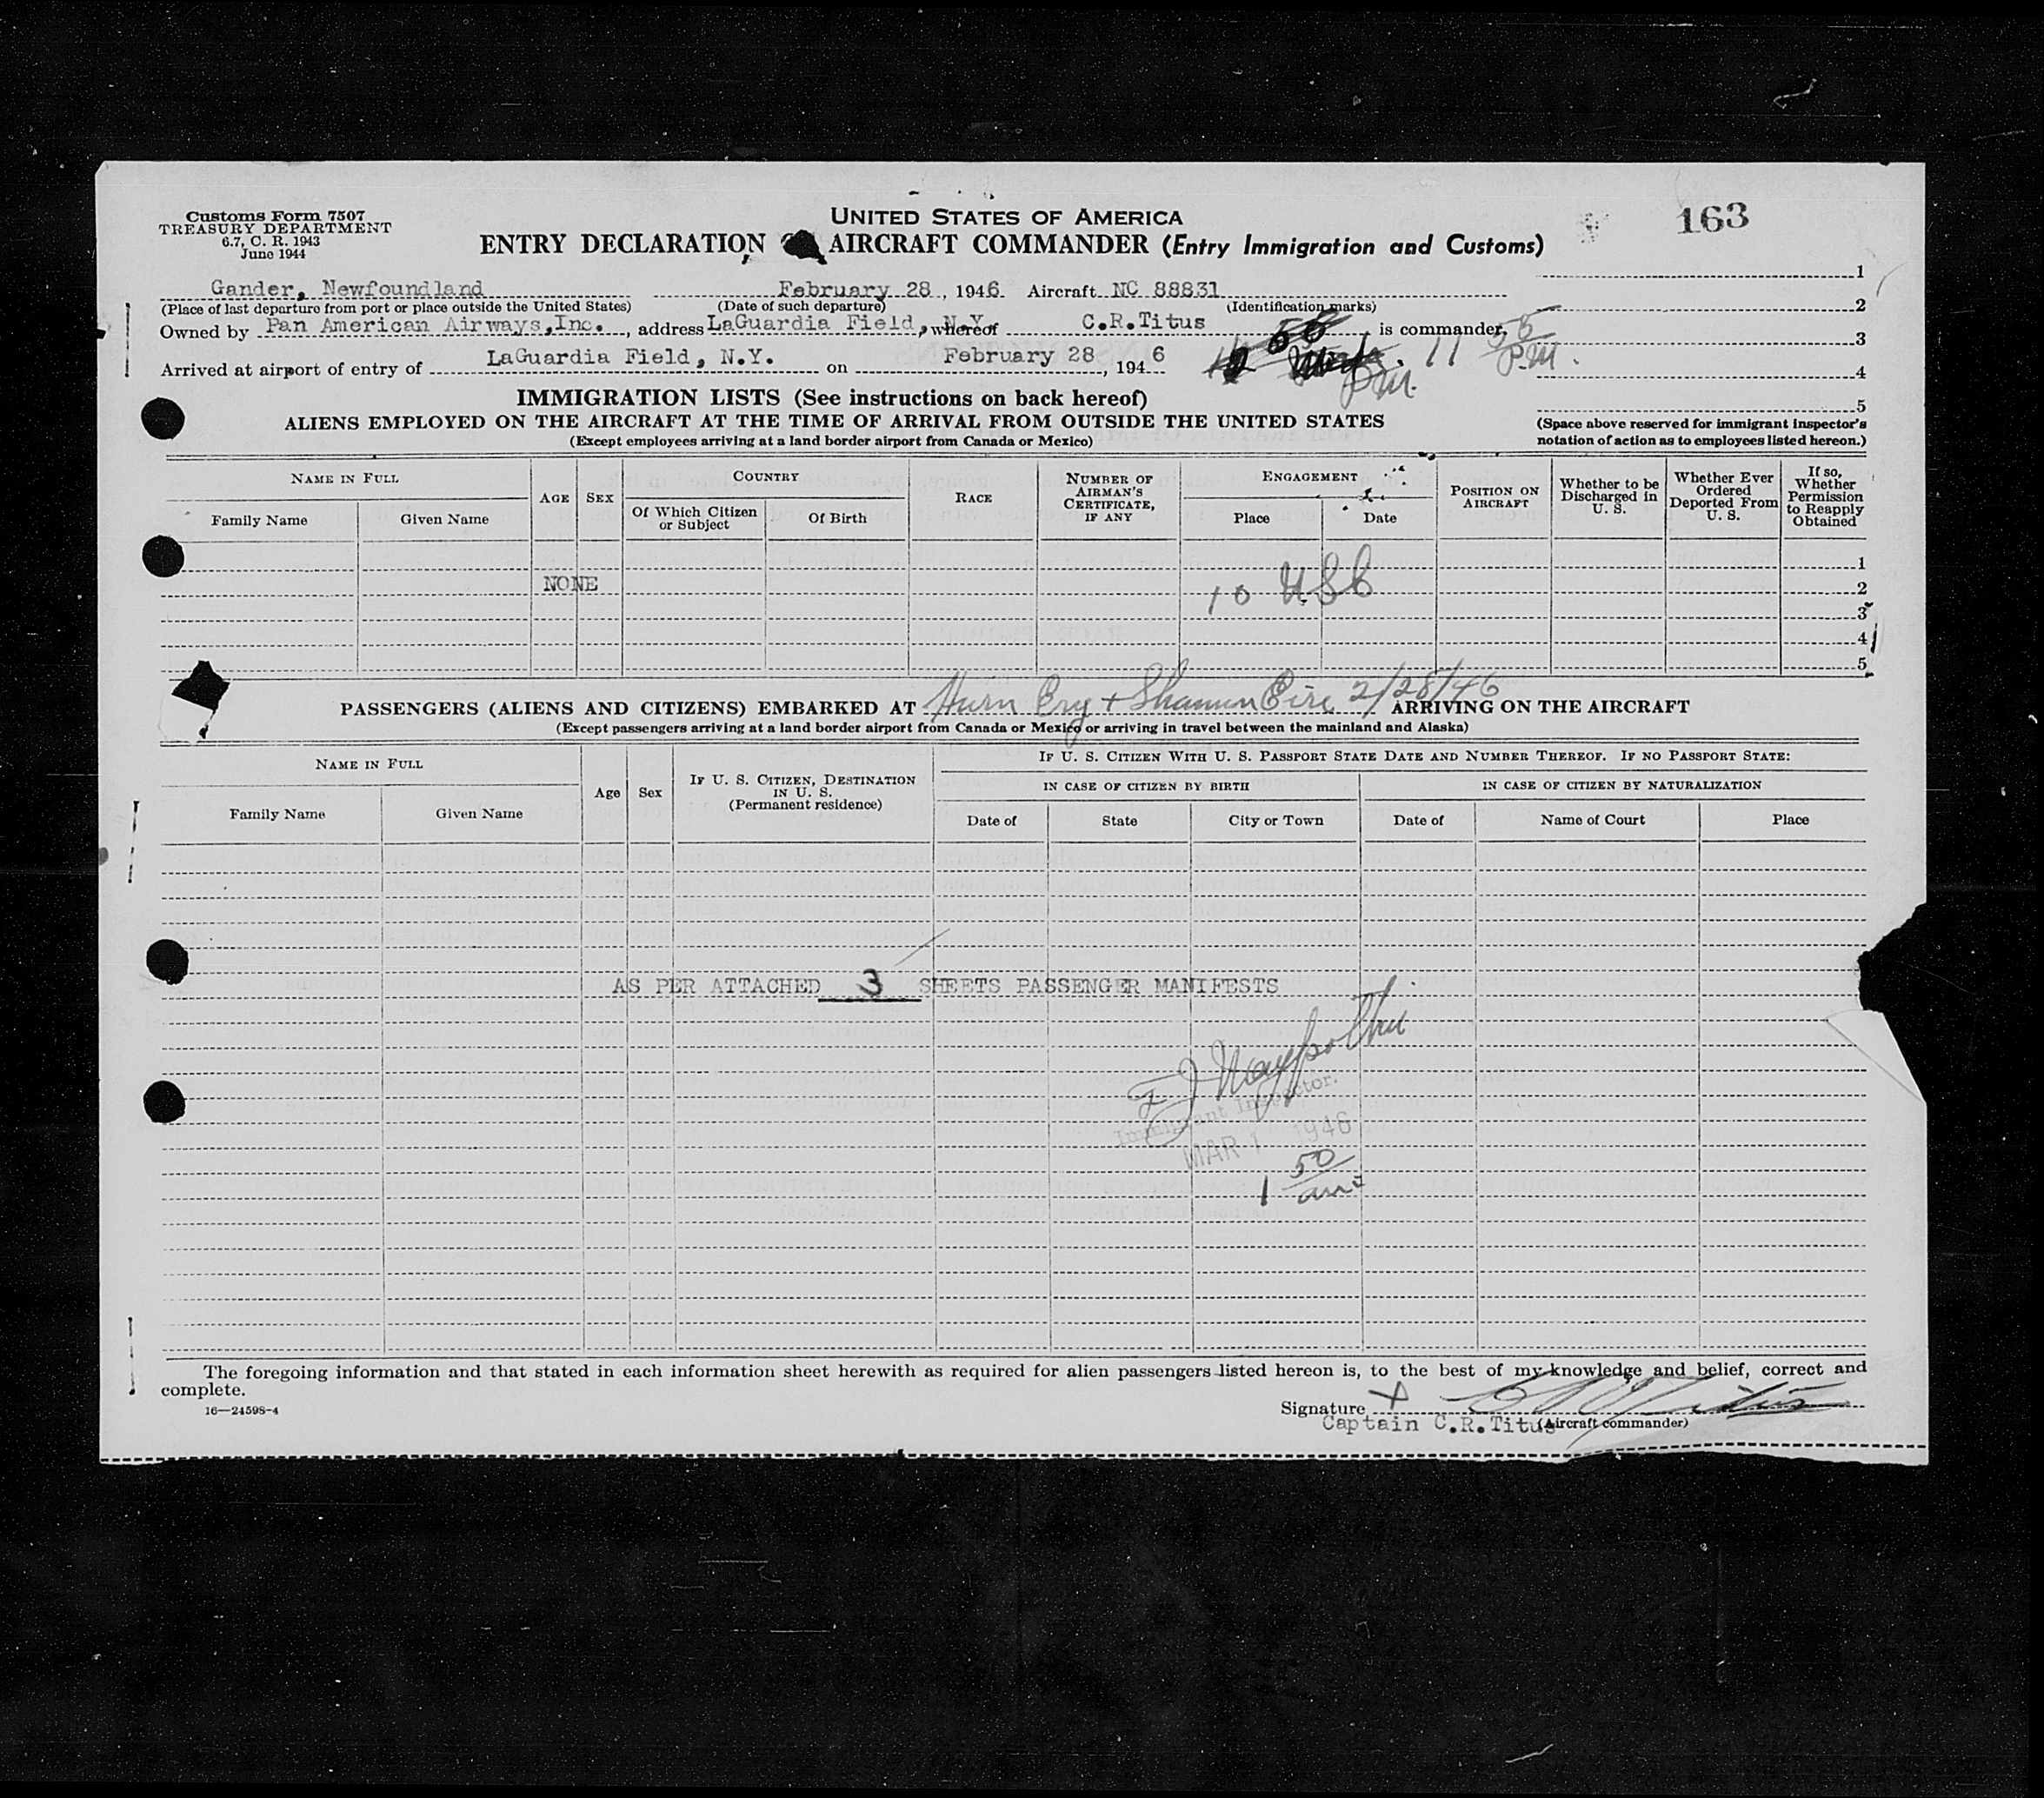 Customs Form 7507
TREASURY DEPARTMENT
6.7, C. R. 1943
June 1944
UNITED STATES OF AMERICA
163
ENTRY DECLARATION AIRCRAFT COMMANDER (Entry Immigration and Customs)
Gander, Newfoundland February 28, 1946 Aircraft NC 88831
(Place of last departure from port or place outside the United States) (Date of such departure) (Identification marks)
Owned by Pan American Airways, Inc., address LaGuardia Field, N.Y. whereof C.R.Titus is commander,
Arrived at airport of entry of LaGuardia Field, N.Y. on February 28, 1946 11 55 P.M.
PM.
1
2
3
4
5
IMMIGRATION LISTS (See instructions on back hereof)
ALIENS EMPLOYED ON THE AIRCRAFT AT THE TIME OF ARRIVAL FROM OUTSIDE THE UNITED STATES
(Except employees arriving at a land border airport from Canada or Mexico)
(Space above reserved for immigrant inspector's
notation of action as to employees listed hereon.)
NAME IN FULL
Family Name Given Name
AGE SEX
COUNTRY
Of Which Citizen or Subject Of Birth
RACE
NUMBER OF AIRMAN'S CERTIFICATE, IF ANY
ENGAGEMENT
Place Date
POSITION ON AIRCRAFT
Whether to be Discharged in U. S.
Whether Ever Ordered Deported From U. S.
If so, Whether Permission to Reapply Obtained
1
NONE 10 USC 2
3
4
5
PASSENGERS (ALIENS AND CITIZENS) EMBARKED AT Hurn Eng + Shannon Eire 2/28/46 ARRIVING ON THE AIRCRAFT
(Except passengers arriving at a land border airport from Canada or Mexico or arriving in travel between the mainland and Alaska)
NAME IN FULL
Family Name Given Name
Age Sex
IF U. S. CITIZEN, DESTINATION IN U. S.
(Permanent residence)
IF U. S. CITIZEN WITH U. S. PASSPORT STATE DATE AND NUMBER THEREOF. IF NO PASSPORT STATE:
IN CASE OF CITIZEN BY BIRTH IN CASE OF CITIZEN BY NATURALIZATION
Date of State City or Town Date of Name of Court Place
AS PER ATTACHED 3 SHEETS PASSENGER MANIFESTS
Immigrant Inspector.
MAR 1 1946
1 50 am
The foregoing information and that stated in each information sheet herewith as required for alien passengers listed hereon is, to the best of my knowledge and belief, correct and
complete.
16—24598-4
Signature X C R Titus
Captain C.R.Titus (Aircraft commander)